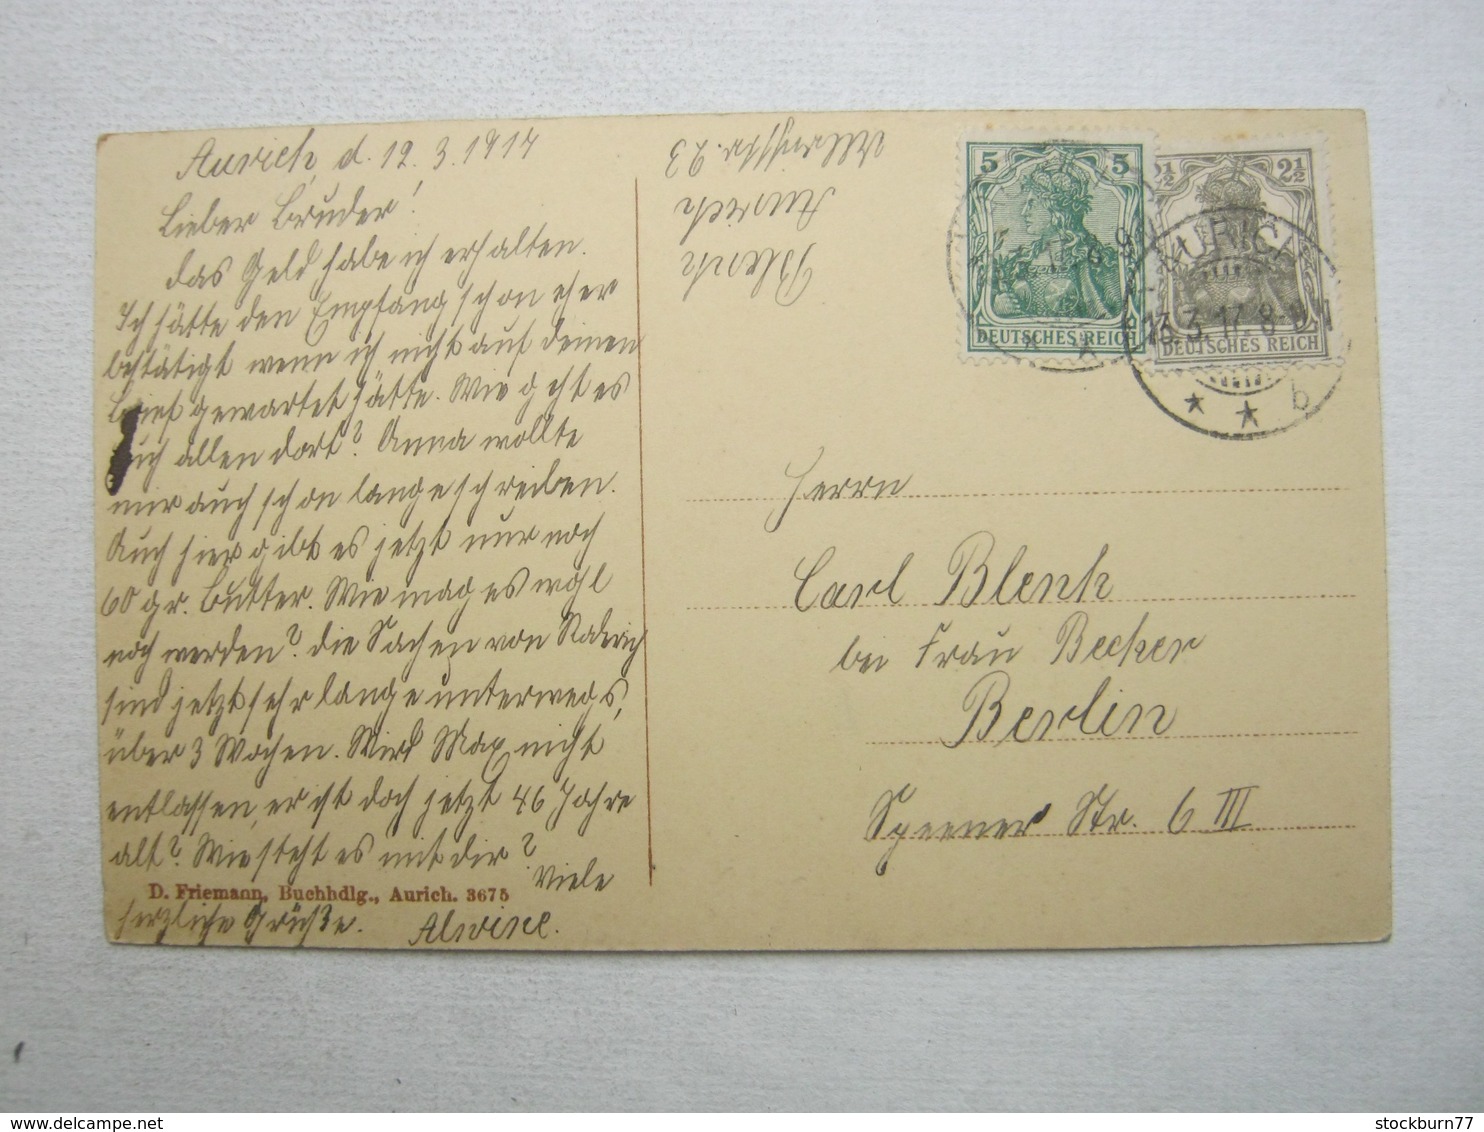 Aurich, d. 12.3.1917
Lieber Bruder!
Das Geld habe ich erhalten.
Ich hätte den Empfang schon eher
bestätigt wenn ich nicht auf deinen
Brief gewartet hätte. Wie geht es
Euch allen dort? Anna wollte
mir auch schon lange schreiben.
Auch hier gibt es jetzt nur noch
60 gr. Butter. Wie mag es wohl
noch werden? Die Sachen von
sind jetzt sehr lange unterwegs,
über 3 Wochen. Wird Max nicht
entlassen, er ist doch jetzt 46 Jahre
alt? Wie steht es mit dir?
Viele
D. Friemann, Buchhdlg., Aurich. 3675
herzliche Grüße. Alwine.
Blenk
Aurich
23
5 5
DEUTSCHES REICH
2½ 2½
DEUTSCHES REICH
AURICH
13.3.17. 8-9
* * b
Herrn
Carl Blenk
bei Frau Becker
Berlin
Speener Str. 6 III
delcampe.net
stockburn77